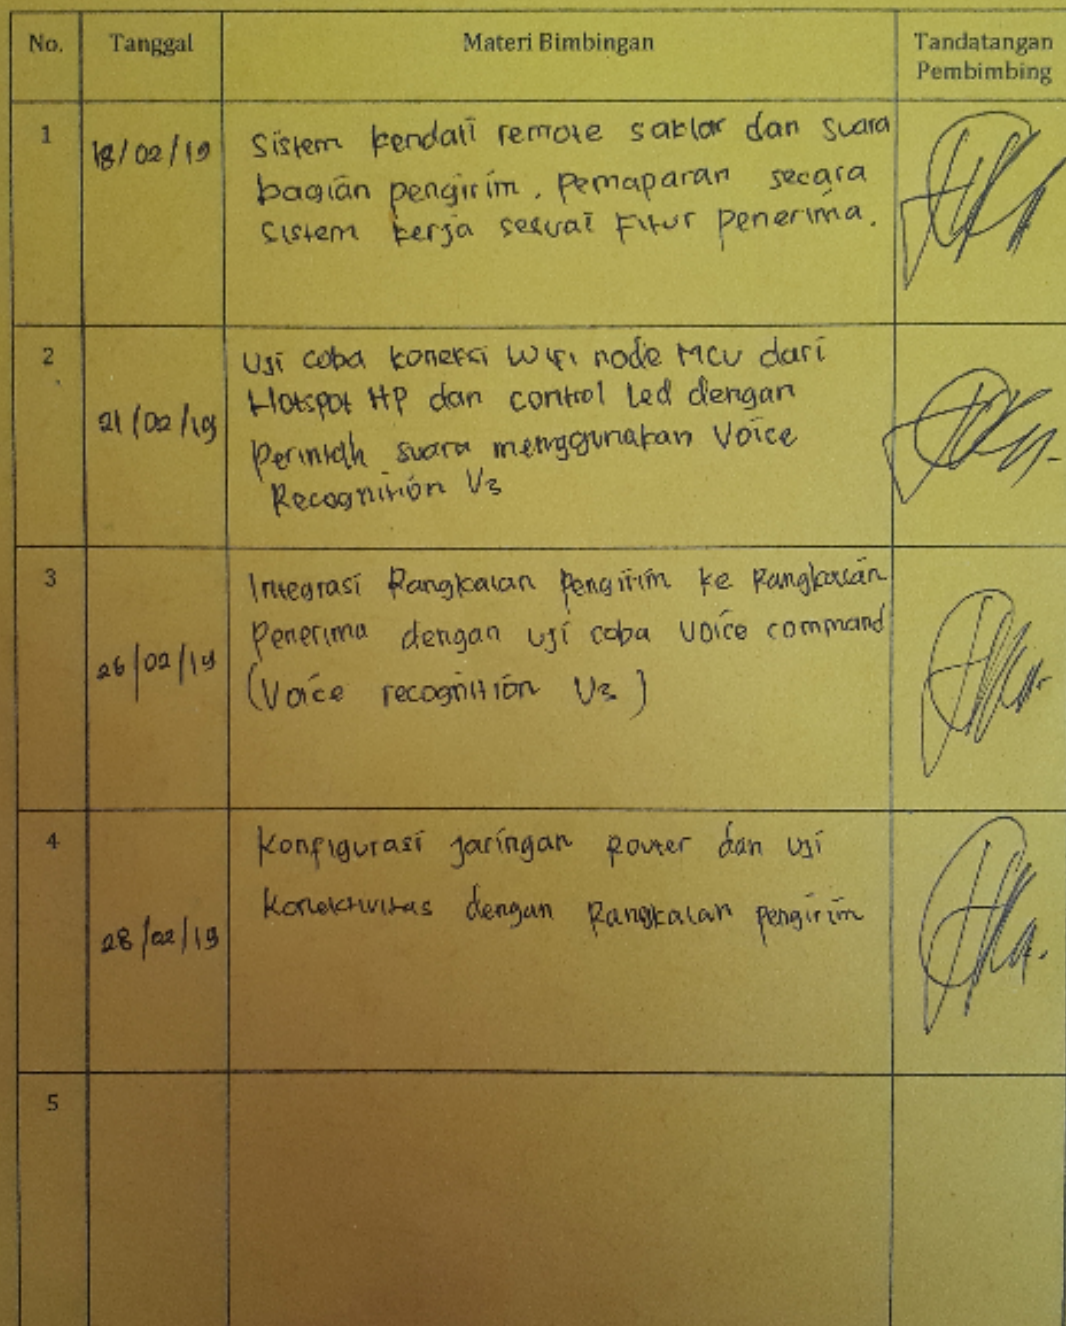 No. Tanggal Materi Bimbingan Tandatangan
Pembimbing
1 18/02/19 Sistem kendali remote saklar dan suara
bagian pengirim. Pemaparan secara
sistem kerja sesuai Fitur penerima.
2 21/02/19 Uji coba koneksi Wifi node MCU dari
Hotspot HP dan control Led dengan
Perintah suara menggunakan Voice
Recognition V3
3 26/02/19 Integrasi Rangkaian Pengirim ke Rangkaian
Penerima dengan uji coba voice command
(Voice recognition V3)
4 28/02/19 Konfigurasi jaringan Router dan uji
Konektivitas dengan Rangkaian pengirim
5